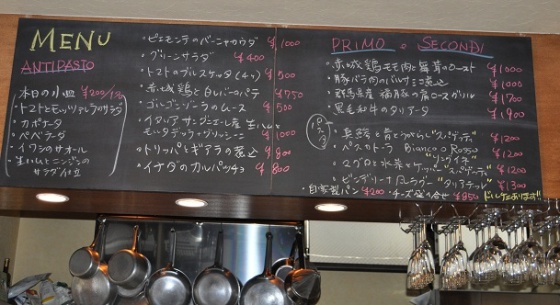 MENU
ANTIPASTO
本日の小皿
・トマトとモッツァレラのサラダ
・カポナータ
・ペペラータ
・イワシのサオール
・生ハムとニンジンの
サラダ仕立
・ピエモンテのバーニャカウダ ¥1000
・グリーンサラダ ¥400
・トマトのブルスケッタ(4ヶ) ¥500
・赤城鶏と白レバーのパテ ¥750
・ゴルゴンゾーラのムース ¥500
・イタリア サンダニエーレ産 生ハムと
モンタデック・グリッシーニ ¥1000
・トリッパとギアラの煮込 ¥900
・イナダのカルパッチョ ¥800
PRIMO e SECONDI
・赤城鶏モモ肉と のロースト ¥1000
・豚バラ肉のバルサミコ煮込 ¥1000
・群馬県産 福豚の肩ロースグリル ¥1700
・黒毛和牛のタリアータ ¥1900
パスタ
"スパゲティ" ¥1200
・ペスカトーラ Bianco o Rosso
"リングイネ" ¥1200
・マグロと水菜 "スパゲティ" ¥1200
"タリアテッレ" ¥1300
・自家製パン ¥200 ・チーズ盛合せ ¥850